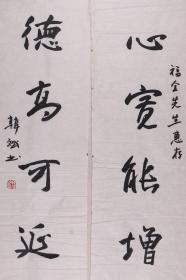 福全先生惠存
心宽能增
德高可延
韩
书